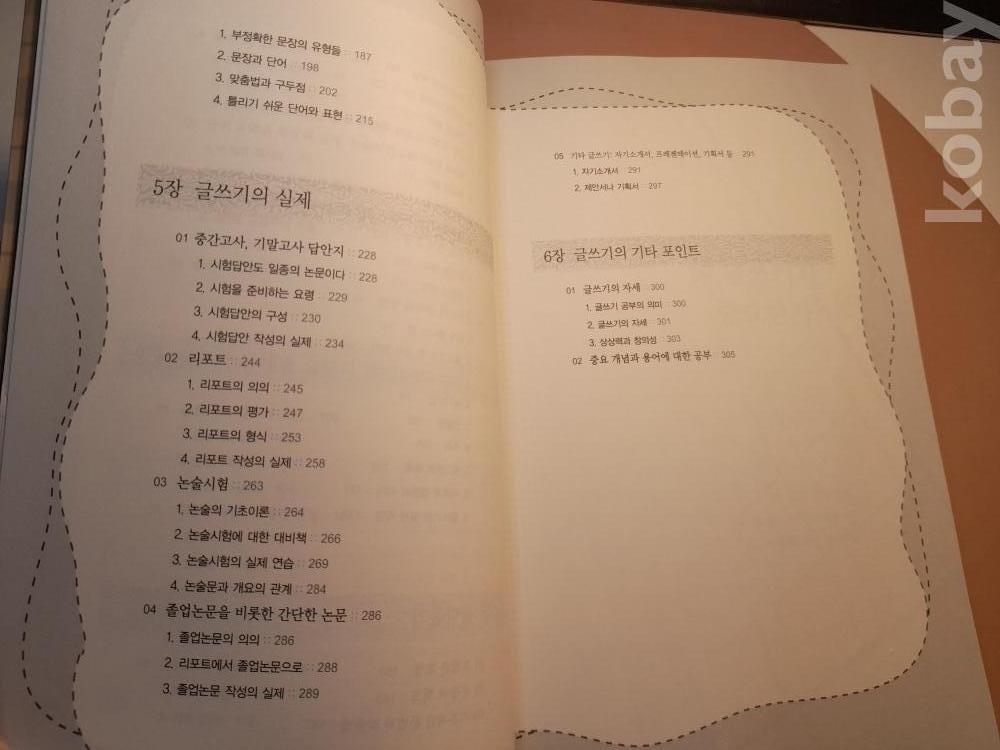 1. 부정확한 문장의 유형들 :: 187
2. 문장과 단어 :: 198
3. 맞춤법과 구두점 :: 202
4. 틀리기 쉬운 단어와 표현 :: 215
5장 글쓰기의 실제
01 중간고사, 기말고사 답안지 :: 228
1. 시험답안도 일종의 논문이다 :: 228
2. 시험을 준비하는 요령 :: 229
3. 시험답안의 구성 :: 230
4. 시험답안 작성의 실제 :: 234
02 리포트 :: 244
1. 리포트의 의의 :: 245
2. 리포트의 평가 :: 247
3. 리포트의 형식 :: 253
4. 리포트 작성의 실제 :: 258
03 논술시험 :: 263
1. 논술의 기초이론 :: 264
2. 논술시험에 대한 대비책 :: 266
3. 논술시험의 실제 연습 :: 269
4. 논술문과 개요의 관계 :: 284
04 졸업논문을 비롯한 간단한 논문 :: 286
1. 졸업논문의 의의 :: 286
2. 리포트에서 졸업논문으로 :: 288
3. 졸업논문 작성의 실제 :: 289
05 기타 글쓰기: 자기소개서, 프레젠테이션, 기획서 등 :: 291
1. 자기소개서 :: 291
2. 제안서나 기획서 :: 297
6장 글쓰기의 기타 포인트
01 글쓰기의 자세 :: 300
1. 글쓰기 공부의 의미 :: 300
2. 글쓰기의 자세 :: 301
3. 상상력과 창의성 :: 303
02 중요 개념과 용어에 대한 공부 :: 305
kobay